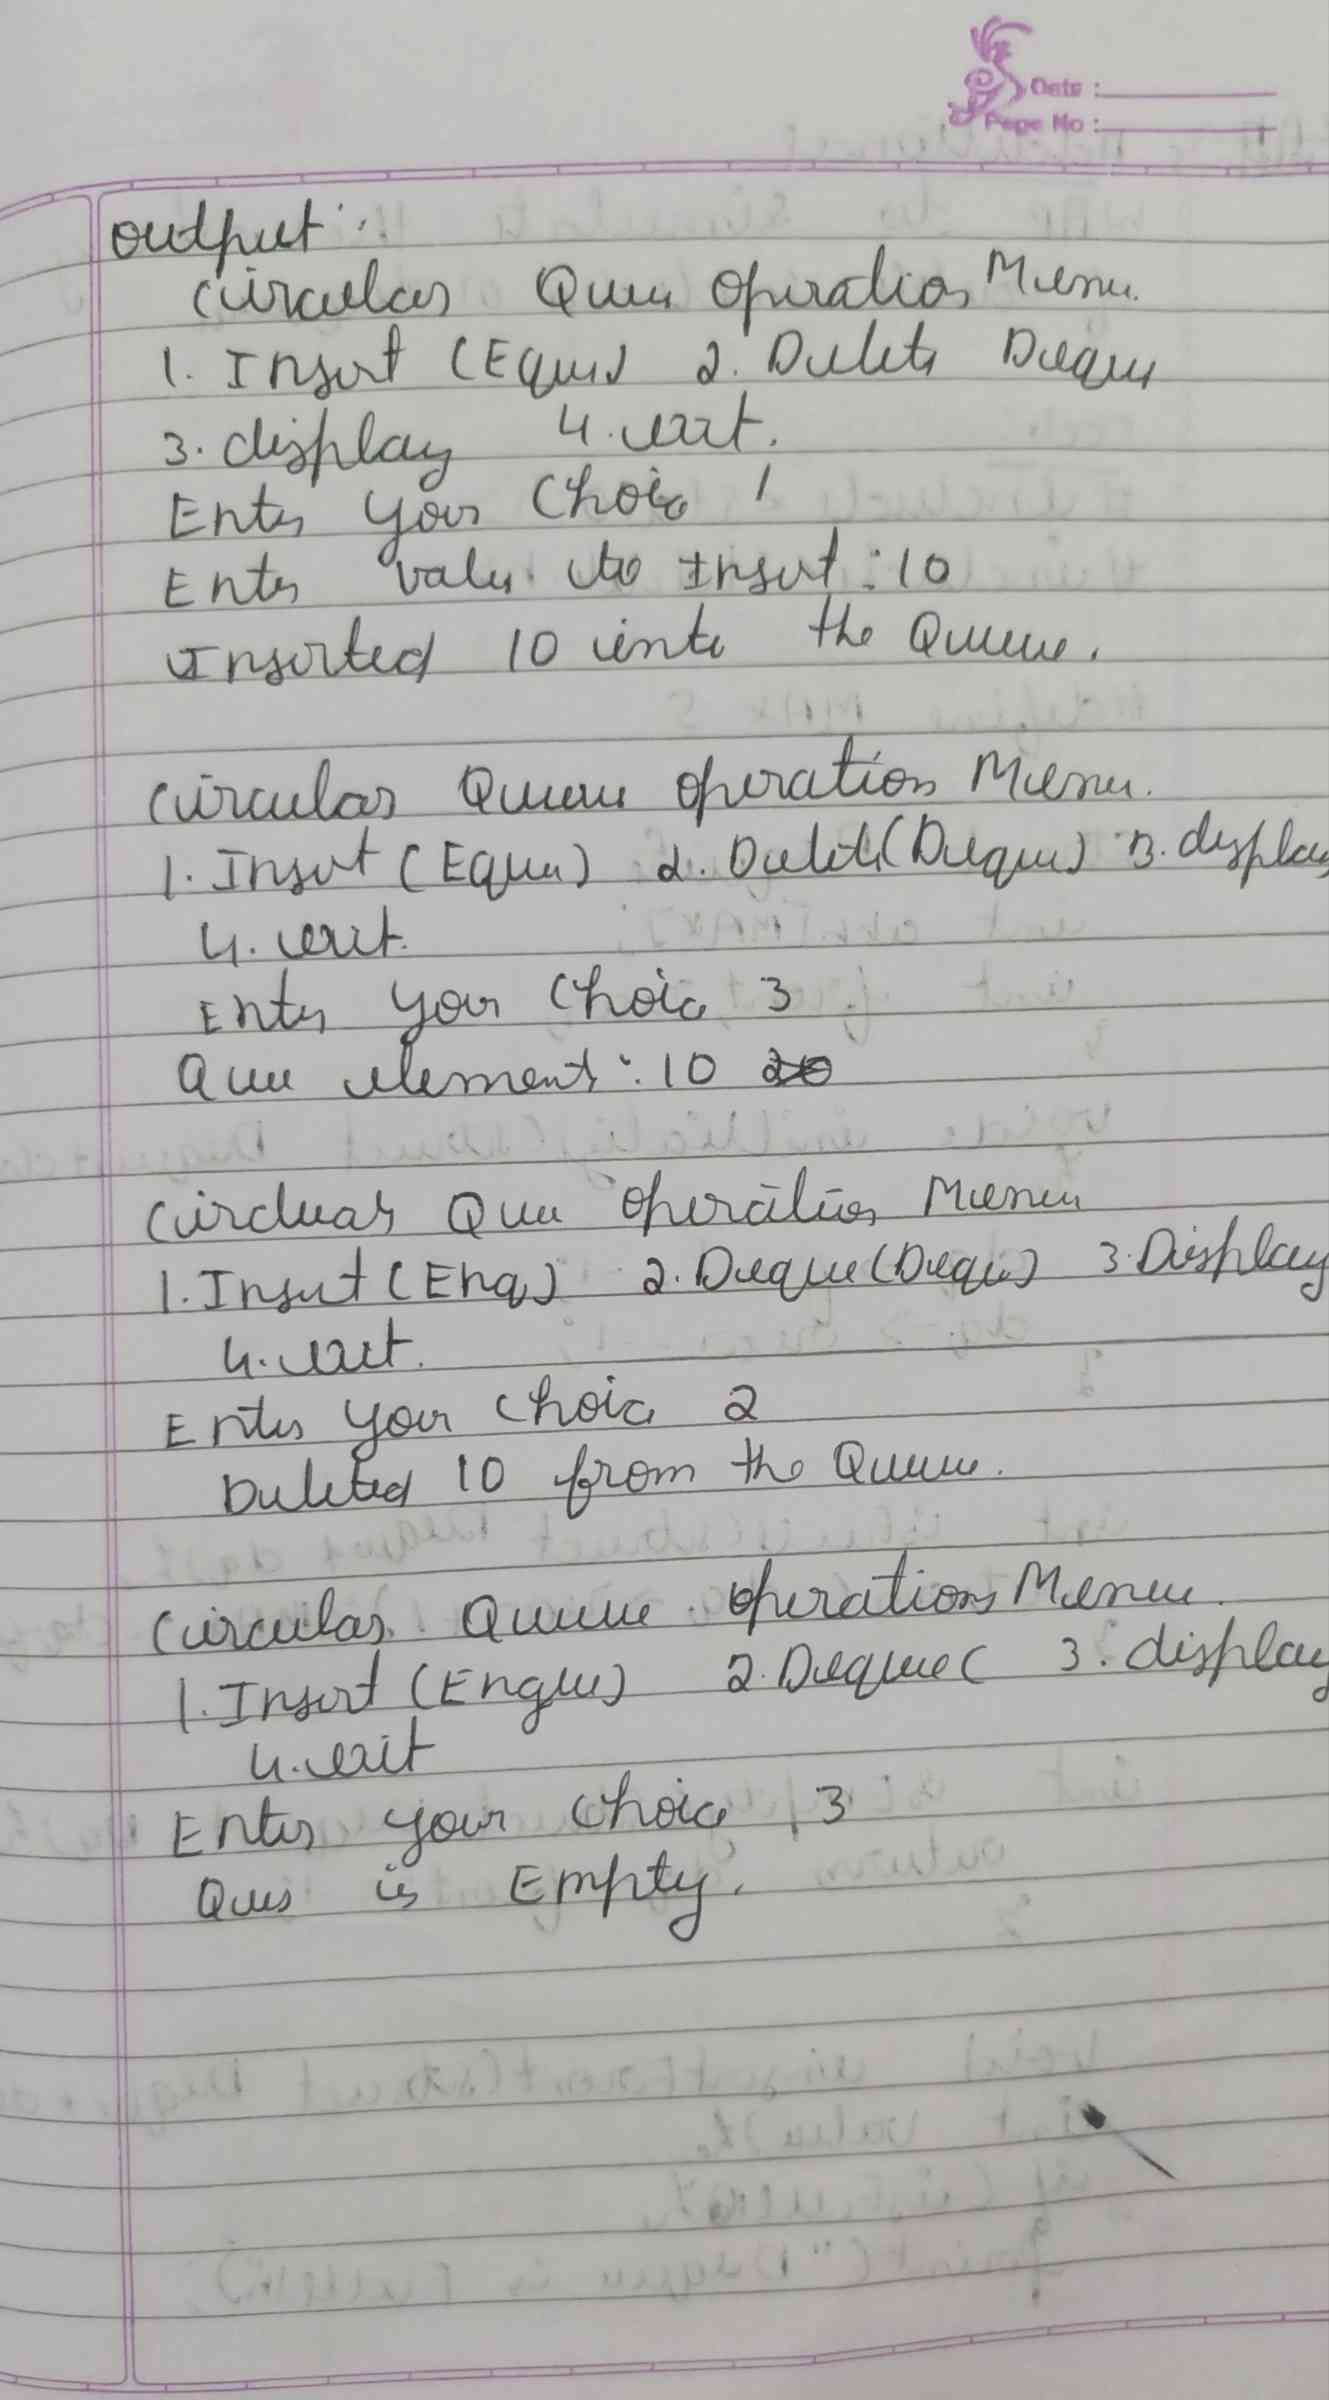 Date :
Page No :
output :
Circular Queu operation Menu.
1. Insert (Eque) 2. Delete Deque
3. display 4. exit.
Enter your Choice 1
Enter value to Insert : 10
Inserted 10 into the Queue.
Circular Queue operation Menu.
1. Insert (Eque) 2. Delete (Deque) 3. display
4. exit.
Enter your Choice 3
Queu element : 10
Circluar Queu operation Menu
1. Insert (Enq) 2. Deque (Deque) 3. Display
4. exit.
Enter your choice 2
Deleted 10 from the Queue.
Circular Queue operations Menu.
1. Insert (Enque) 2. Dequeue ( 3. display
4. exit
Enter your choice 3
Queu is Empty.